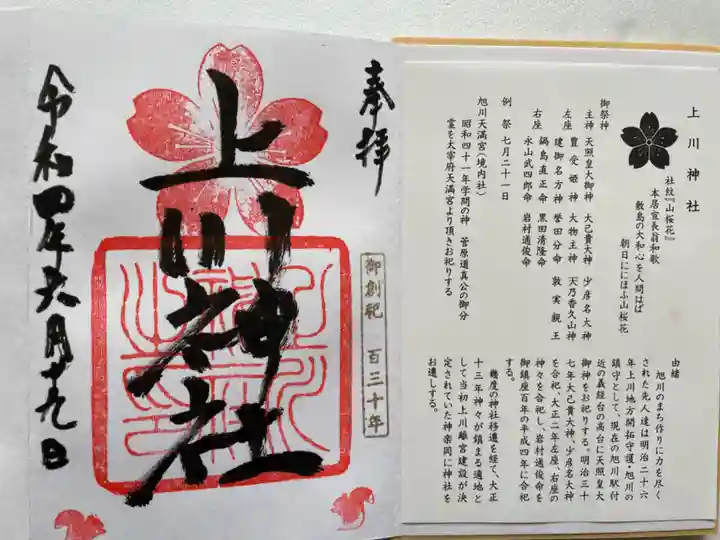 上川神社
社紋『山桜花』
本居宣長翁和歌
敷島の大和心を人問はば
朝日ににほふ山桜花
御祭神
主神 天照皇大御神 大己貴大神 少彦名大神
左座 豊受姫神 大物主神 天乃香久山神
建御名方神 誉田分命 敦実親王
右座 鍋島直正命 黒田清隆命
永山武四郎命 岩村通俊命
例祭 七月二十一日
旭川天満宮(境内社)
昭和四十一年学問の神 菅原道真公の御分
霊を太宰府天満宮より頂きお祀りする
由緒
旭川のまち作りに力を尽く
された先人達は明治二十六
年上川地方開拓守護・旭川の
鎮守として、現在の旭川駅付
近の義経台の高台に天照皇大
御神をお祀りする。明治三十
七年大己貴大神、少彦名大神
を合祀、大正二年左座、右座の
神々を合祀し、岩村通俊命を
御鎮座百年の平成四年に合祀
する。
幾度の神社移遷を経て、大正
十三年神々が鎮まる適地と
して当初上川離宮建設が決
定されていた神楽岡に神社を
お遷しする。
奉拝
御創祀 百三十年
上川神社
令和四年六月十九日